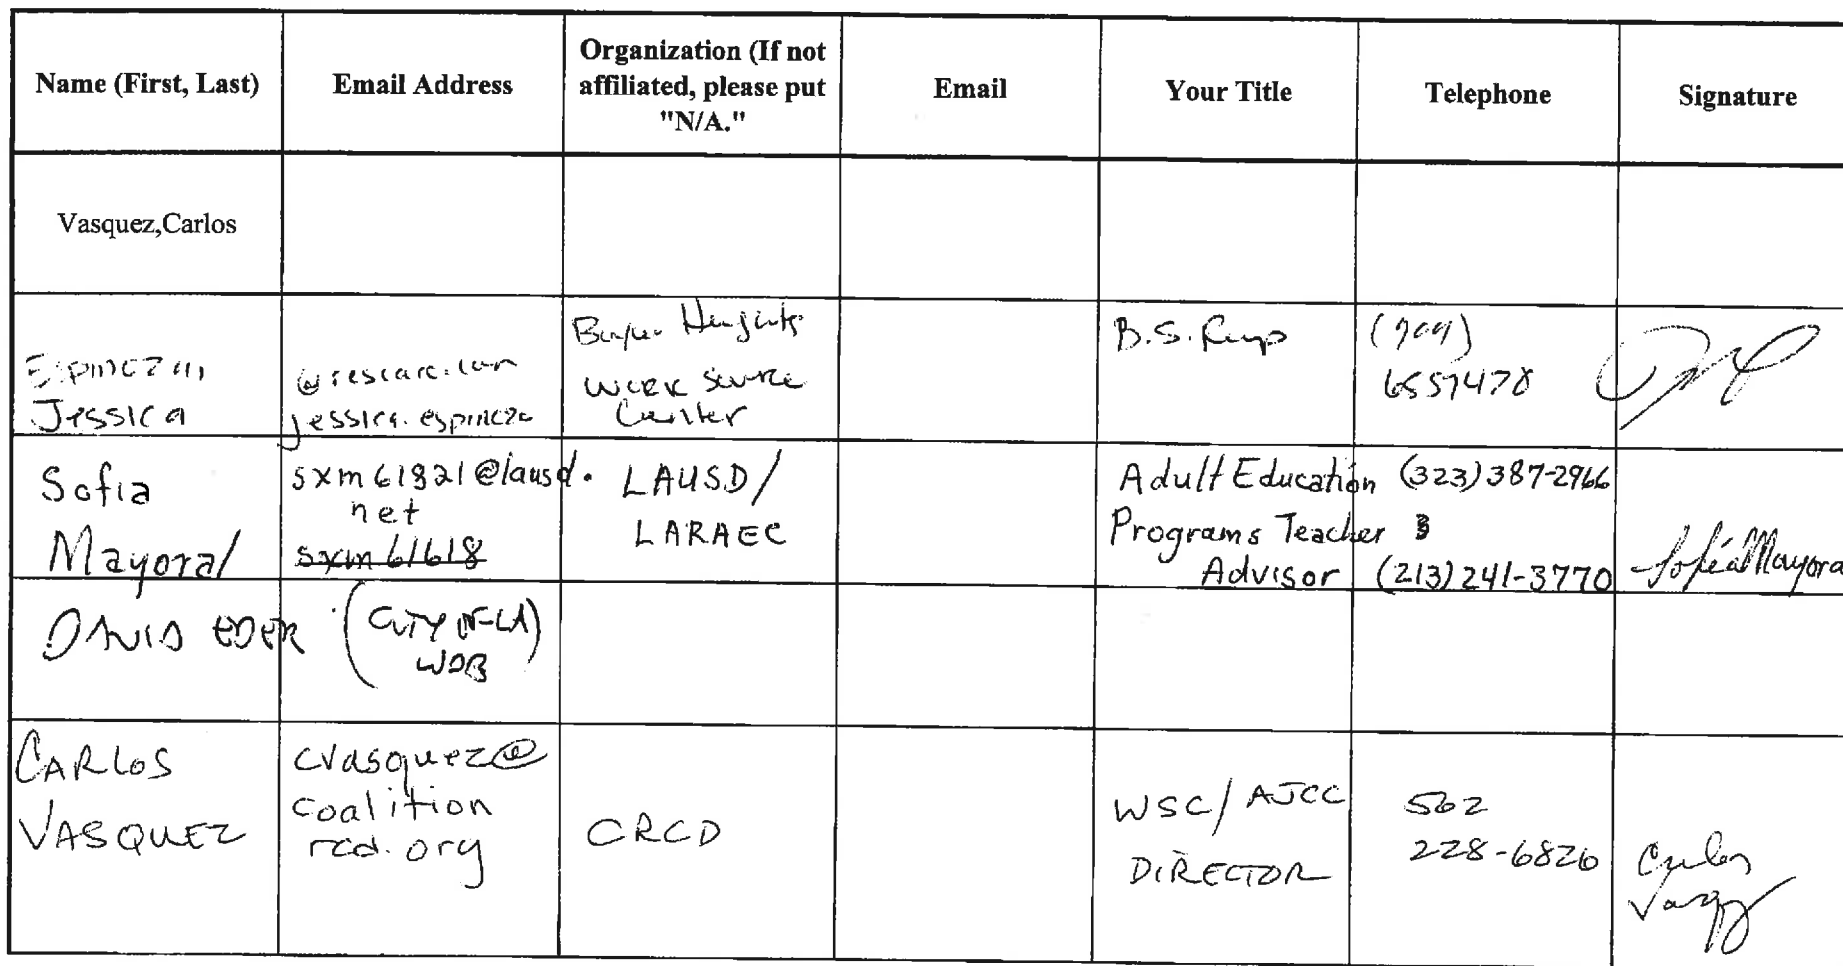 Name (First, Last)
Email Address
Organization (If not
affiliated, please put
"N/A."
Email
Your Title
Telephone
Signature
Vasquez,Carlos
Jessica
jessica.espinoza
Work Source
Center
B.S. Rep
(909)
6557478
Sofia
Mayoral
sxm61821@lausd.
net
sxm61618
LAUSD/
LARAEC
Adult Education
Programs Teacher
Advisor
(323)387-2966
(213)241-3770
Sofia Mayoral
DAVID EDER
(CITY OF LA)
WDB
CARLOS
VASQUEZ
cvasquez@
coalition
rcd.org
CRCD
WSC/AJCC
DIRECTOR
562
228-6826
Carlos